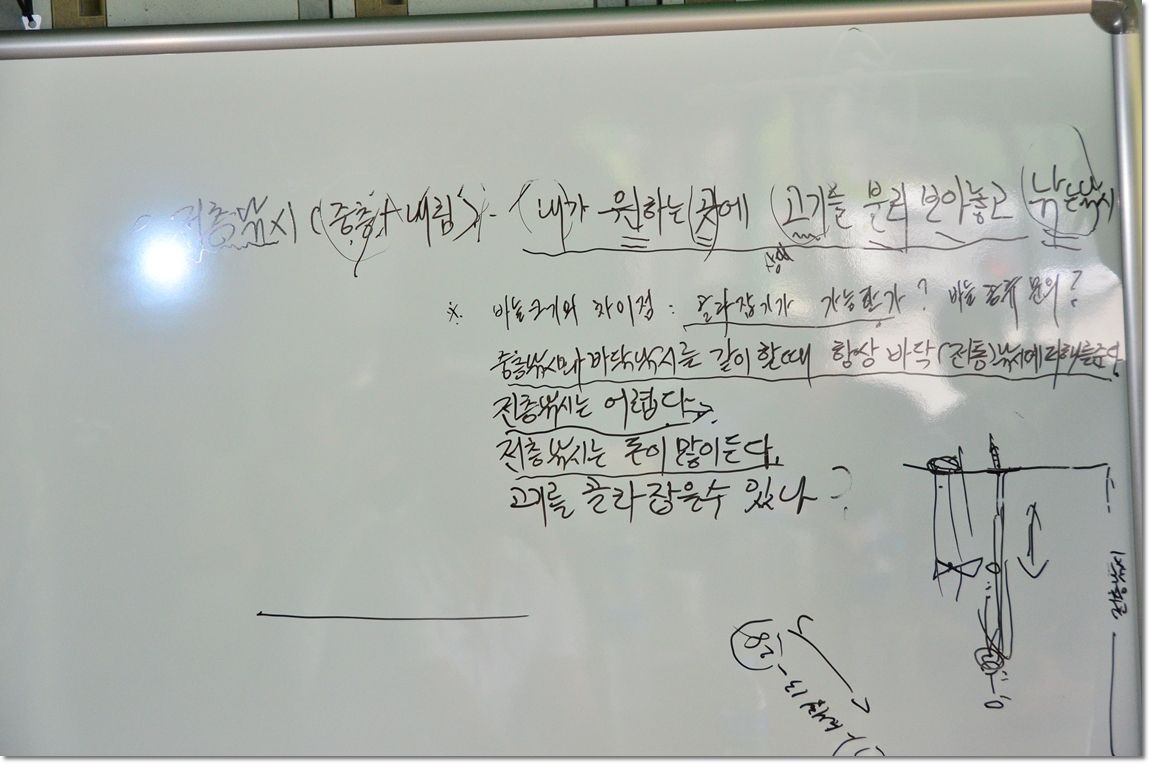 전층낚시 (중층+내림) - (내가 원하는 곳에 (고기를 불러 모아놓고 (낚는낚시
※ 바늘크기와 차이점 : 골라잡기가 가능한가? 바늘 종류 문의?
중층낚시와 바닥낚시를 같이 할때 항상 바닥(전통)낚시에 피해를준다.
전층낚시는 어렵다
전층낚시는 돈이 많이든다.
고기를 골라 잡을수 있나?